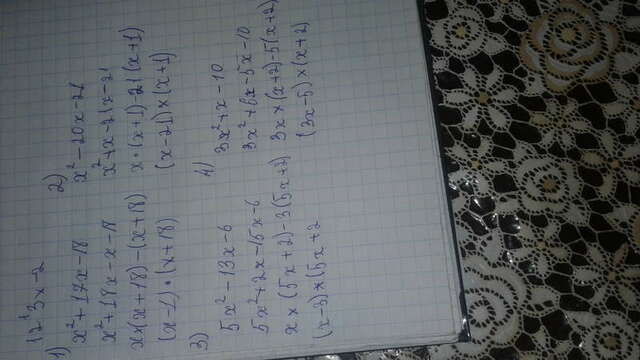 12¹3x-2
1)
x²+17x-18
x²+18x-x-18
x×(x+18)-(x+18)
(x-1)·(x+18)
2)
x²-20x-21
x²+x-21x-21
x·(x+1)-21(x+1)
(x-21)×(x+1)
3)
5x²-13x-6
5x²+2x-15x-6
x×(5x+2)-3(5x+2)
(x-3)×(5x+2
4)
3x²+x-10
3x²+6x-5x-10
3x×(x+2)-5(x+2)
(3x-5)×(x+2)